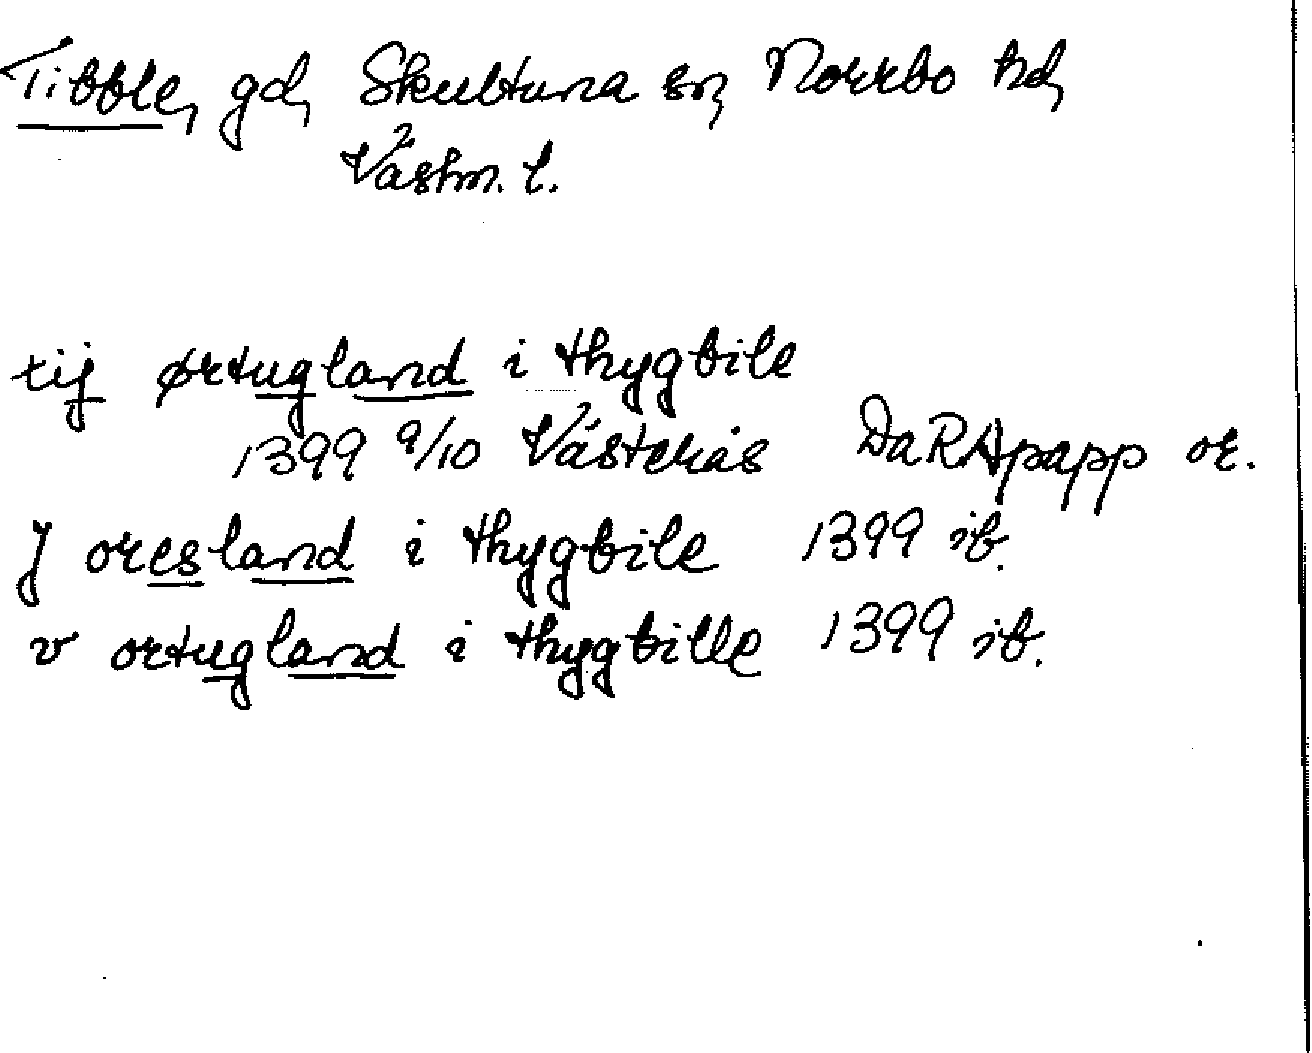 Tibble, gd, Skultuna sn, Norrbo hd,
Västm. l.
tij ørtugland i thygbile
1399 9/10 Västerås DaRApapp or.
j oresland i thygbile 1399 ib.
v ortugland i thygbille 1399 ib.